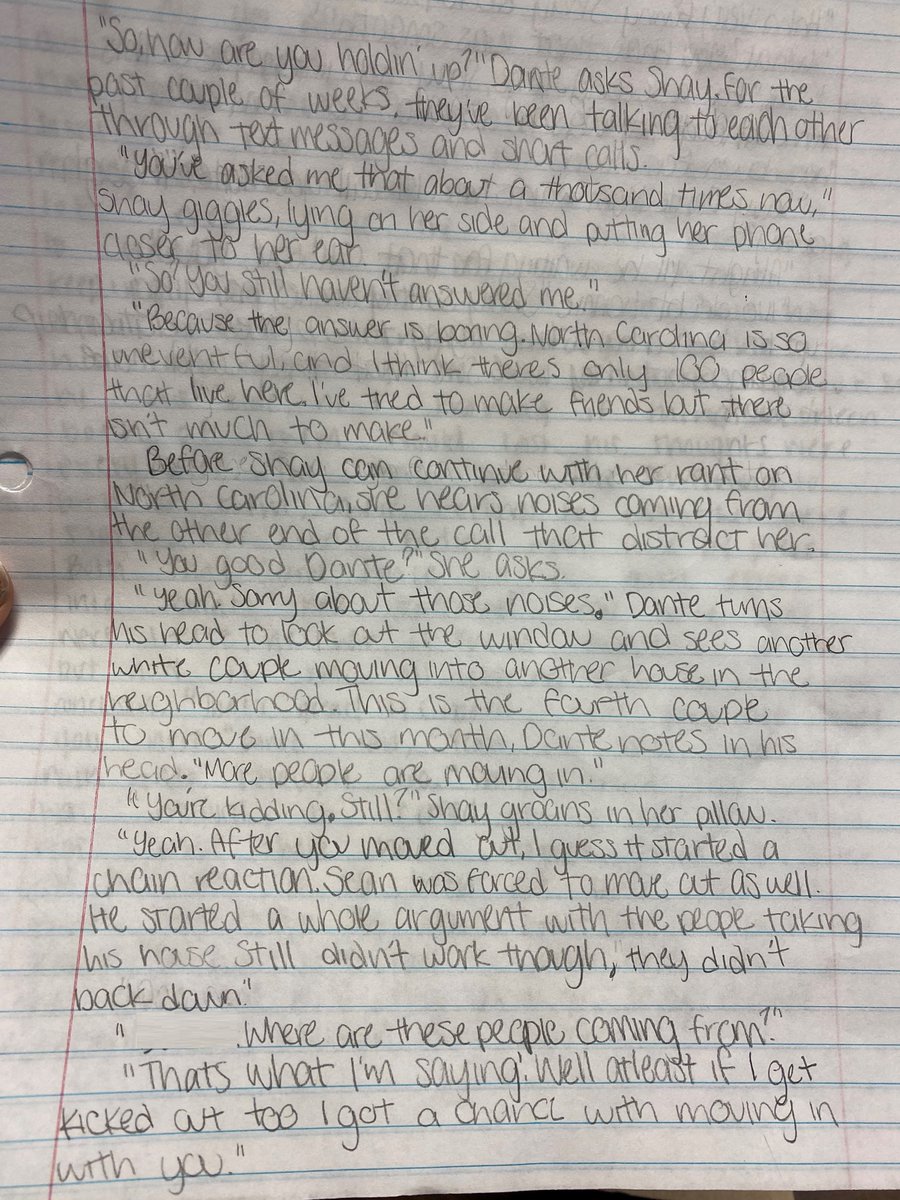 "So, how are you holdin' up?" Dante asks Shay. For the
past couple of weeks, they've been talking to each other
through text messages and short calls.
"You've asked me that about a thousand times now,"
Shay giggles, lying on her side and putting her phone
closer to her ear.
"So? You still haven't answered me."
"Because the answer is boring. North Carolina is so
uneventful, and I think theres only 100 people
that live here. I've tried to make friends but there
isn't much to make."
Before Shay can continue with her rant on
North Carolina, she hears noises coming from
the other end of the call that distract her.
"You good Dante?" She asks.
"Yeah. Sorry about those noises." Dante turns
his head to look at the window and sees another
white couple moving into another house in the
neighborhood. This is the fourth couple
to move in this month, Dante notes in his
head. "More people are moving in."
"You're kidding. Still?" Shay groans in her pillow.
"Yeah. After you moved out, I guess it started a
chain reaction. Sean was forced to move out as well.
He started a whole argument with the people taking
his house. Still didn't work though, they didn't
back down."
" . Where are these people coming from?"
"Thats what I'm saying! Well atleast if I get
kicked out too I got a chance with moving in
with you."